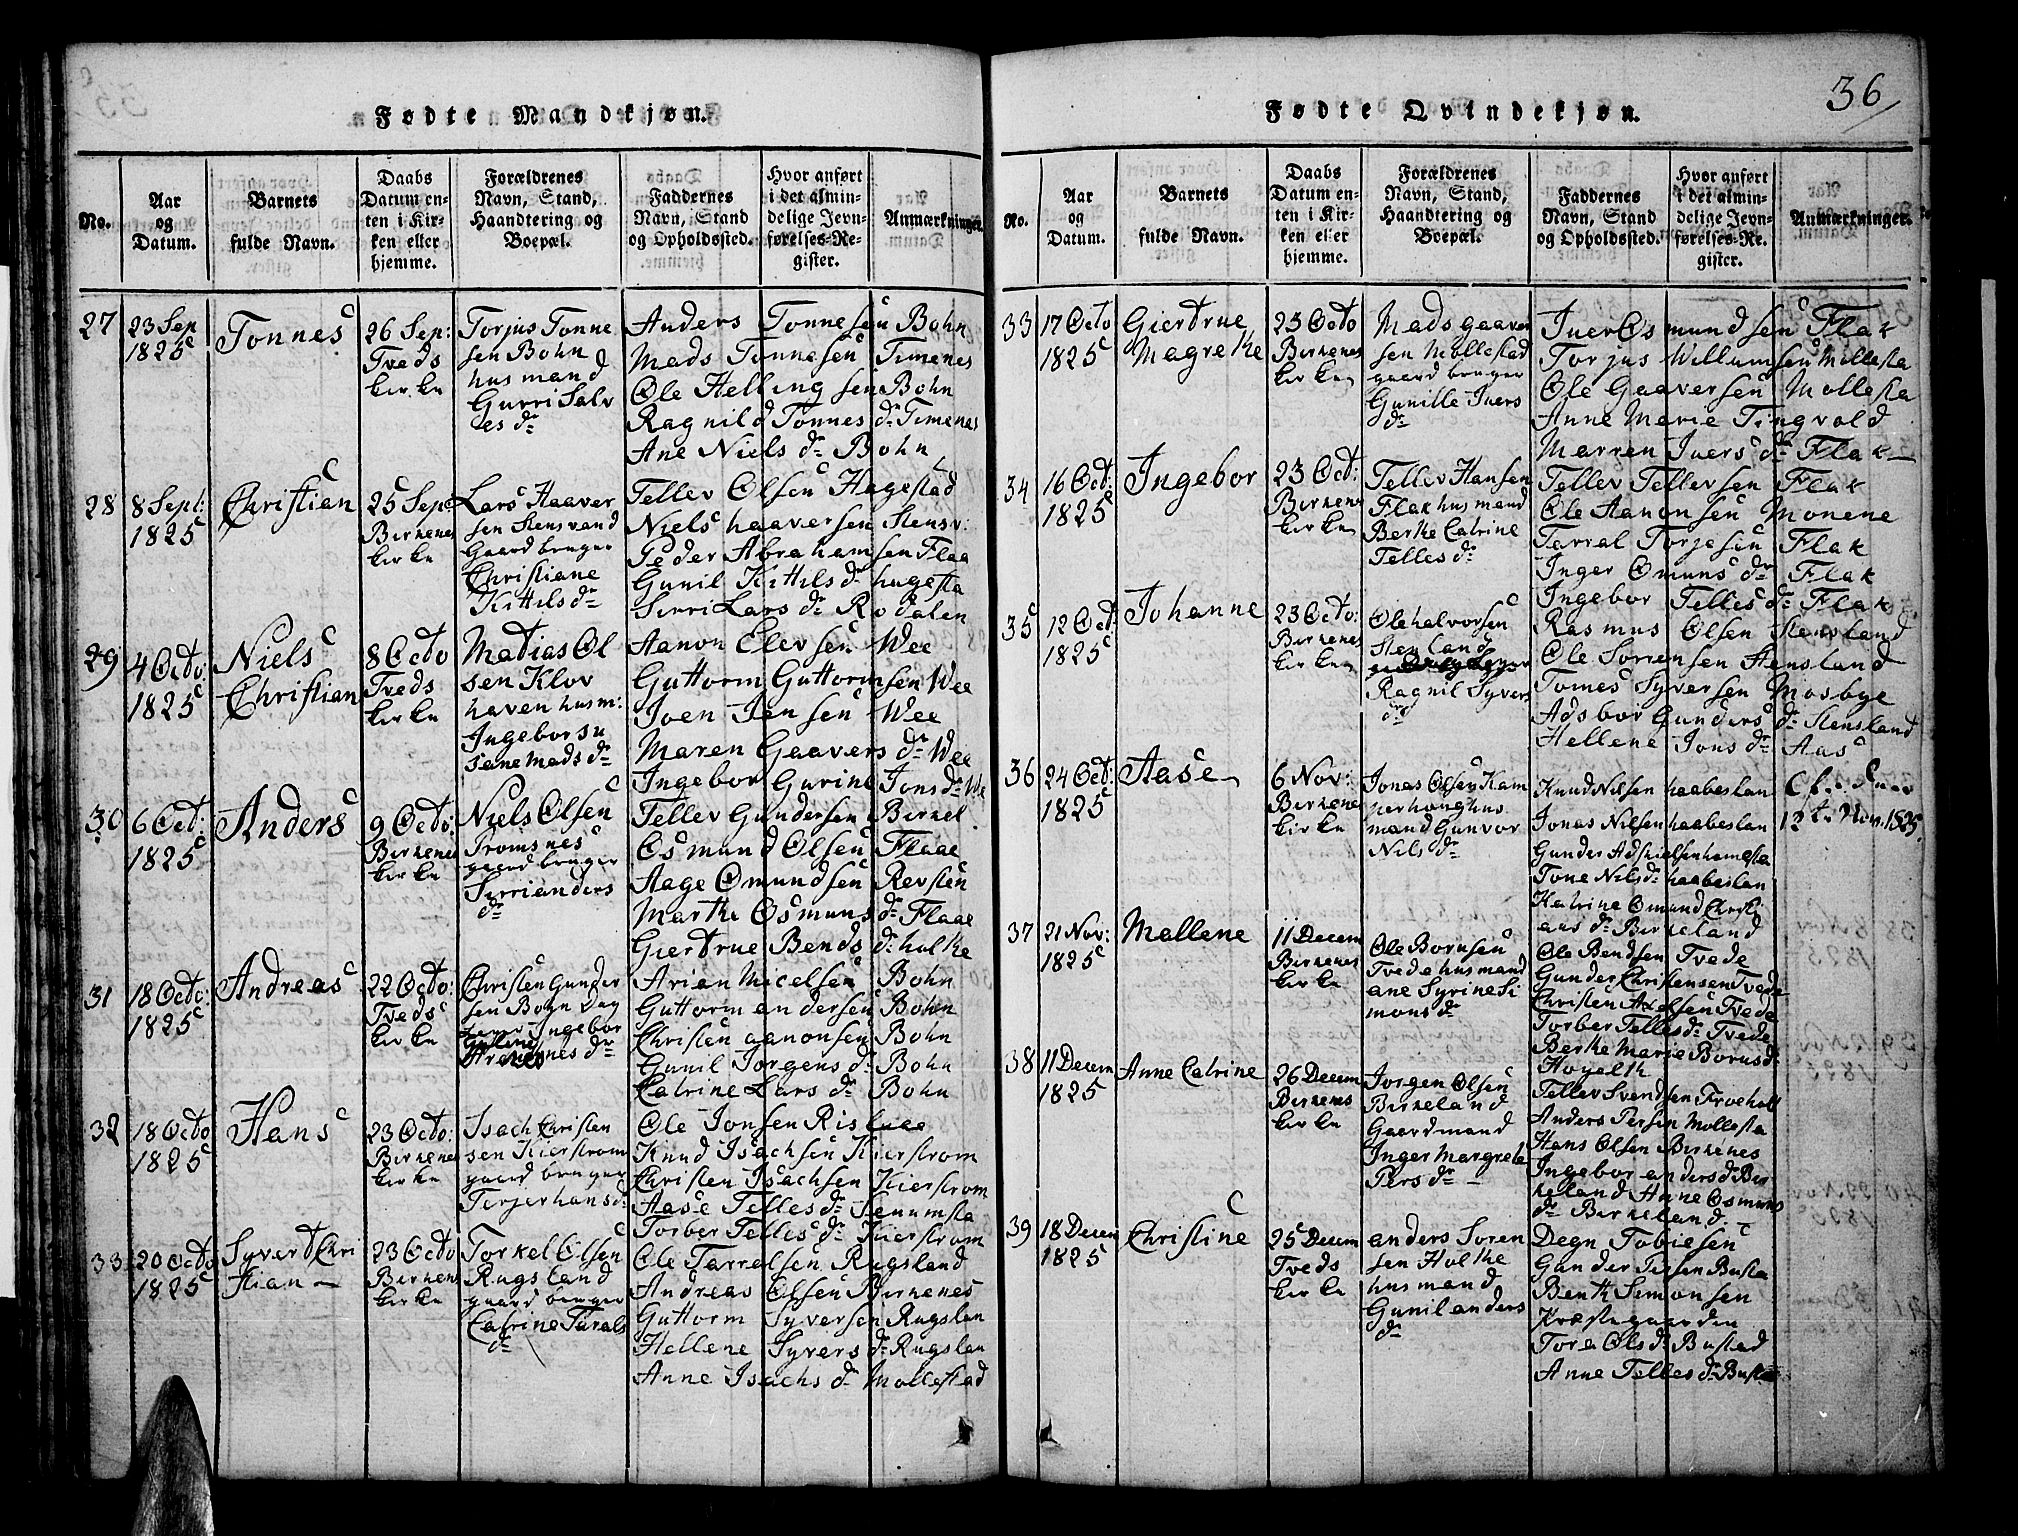 Fødte Mandkjøn.
No.
Aar
og
Datum.
Barnets
fulde Navn.
Daabs
Datum en-
ten i Kir-
ken eller
hjemme.
Forældrenes
Navn, Stand,
Haandtering og
Boepæl.
Faddernes
Navn, Stand
og Opholdssted.
Hvor anført
i det almin-
delige Jevn-
førelses-Re-
gister.
Anmærkninger.
27
23 Sep
1825
Tonnes
26 Sep:
Tveds
kirke
Torjus Tonne
sen Bohn
husmand
Gurri Salv
es dr
Anders Tonnesen Bohn
Mads Tonnesen Timenes
Ole Hellingsen Bohn
Ragnild Tonnes dr Timenes
Ane Niels dr Bohn
28
8 Sept:
1825
Christian
25 Sep:
Birkenes
kirke
Lars Haaver
sen Stensvand
Gaardbruger
Christiane
Kittils dr
Tellev Olsen Hagestad
Niels haaversen Stensv:
Peder Abrahamsen Flaa
Gunil Kittils dr hagesta
Sirri Lars dr Rodalen
29
4 Octo
1825
Niels
Christian
8 Octo
Tveds
kirke
Matias Ol
sen Klov
haven husm:
Ingebor su
sane Mads dr
Aanon Elevsen Wee
Guttorm Guttormsen Wee
Joen Jensen Wee
Maren Gaavers dr Wee
Ingebor Gurine Jons dr We
30
6 Oct:
1825
Anders
9 Octo:
Birkenes
kirke
Niels Olsen
Tromsnes
gaardbruger
Sirri anders
dr
Tellev Gundersen Birkel
Osmund Olsen Flaae
Aage Omundsen Revsten
Marthe Osmuns dr Flaae
Giertrue Bends dr holthe
31
18 Octo:
1825
Andreas
22 Octo:
Tveds
kirke
Christen Gunder
sen Bohn Dag
Ingebor
Arian Micelsen Bohn
Guttorm andersen Bohn
Christen aanonsen Bohn
Gunil Jorgens dr Bohn
Catrine Lars dr Bohn
32
18 Octo
1825
Hans
23 Octo:
Birkenes
kirke
Isach Christen
sen Kierstrom
gaardbruger
Terjer hans dr
Ole Jonsen Rislaae
Knud Isachsen Kierstrom
Christen Isachsen Kierstrom
Aase Telles dr Senumsta
Torber Telles dr Kierstrom
33
20 Octo
1825
Syvert Chri
stian
23 Octo
Birkenes
kirke
Torkel Olsen
Rugsland
gaardbruger
Catrine Tarals
dr
Ole Tarrelsen Rugsland
Andreas Olsen Birkenes
Guttorm Syversen Rugslan
Hellene Syvers dr Rugslan
Anne Isachs dr Mollestad
36
Fødte Qvindekjøn.
No.
Aar
og
Datum.
Barnets
fulde Navn.
Daabs
Datum en-
ten i Kir-
ken eller
hjemme.
Forældrenes
Navn, Stand,
Haandtering og
Boepæl.
Faddernes
Navn, Stand
og Opholdssted.
Hvor anført
i det almin-
delige Jevn-
førelses-Re-
gister.
Anmærkninger.
33
17 Octo
1825
Giertrue
Magrethe
25 Octo
Birkenes
kirke
Mads gaaver
sen Mollestad
gaardbruger
Gunille Ivers
dr
Iver Osmundsen Flak
Torjus Willumsen Mollesta
Ole Gaaversen Mollesta
Anne Marie Tingvold
Marren Ivers dr Flak
34
16 Oct:
1825
Ingebor
23 Oct:
Birkenes
kirke
Tellev Hansen
Flak husmand
Berthe Catrine
Telles dr
Tellev Tellevsen Flak
Ole Aanonsen Monene
Tarral Torjesen Flak
Inger Omuns dr Flak
Ingebor Telles dr Flak
35
12 Oct:
1825
Johanne
23 Octo:
Birkenes
kirke
Ole halvorsen
Stensland
Ragnil Syvers
dr
Rasmus Olsen Stensland
Ole Sorrensen Stensland
Tomes Syversen Mosbye
Adsbor Gunders dr Stensland
Hellene Jons dr Aas
36
24 Oct:
1825
Aase
6 Nov:
Birkenes
kirke
Jonas Olsen Kam
perhoug hus
mand Gunvor
Nils dr
Knud Nilsen haabeslan
Jonas Nilsen haabeslan
Gunder Adskielsen hamesta
Tone Nils dr haabeslan
Katrine Omund Christi
ans dr Birkeland
12te Nov. 1825.
37
21 Nov:
1825
Mallene
11 Decem
Birkenes
kirke
Ole Bornsen
Tvede husmand
ane Syrine Si
mons dr
Ole Bendsen Tvede
Gunder Christensen Tvede
Christen Axelsen Tvede
Torber Telles dr Tvede
Berthe Marie Borns dr
38
11 Decem
1825
Anne Catrine
26 Decem
Birkenes
kirke
Jorgen Olsen
Birkeland
Gaardmand
Inger Margrete
Pers dr
Tellev Svendsen
Anders Persen Mollesta
Hans Olsen Birkenes
Ingebor anders dr Bir
keland Anne Osmuns
dr Birkeland
39
18 Decem
1825
Christine
25 Decem
Tveds
kirke
anders Soren
sen Holthe
husmand
Gunil anders
dr
Degn Tobiesen
Gunder Tersen Busta
Benth Simonsen
Præstegaarden
Tore Ols dr Bustad
Anne Telles dr Busta